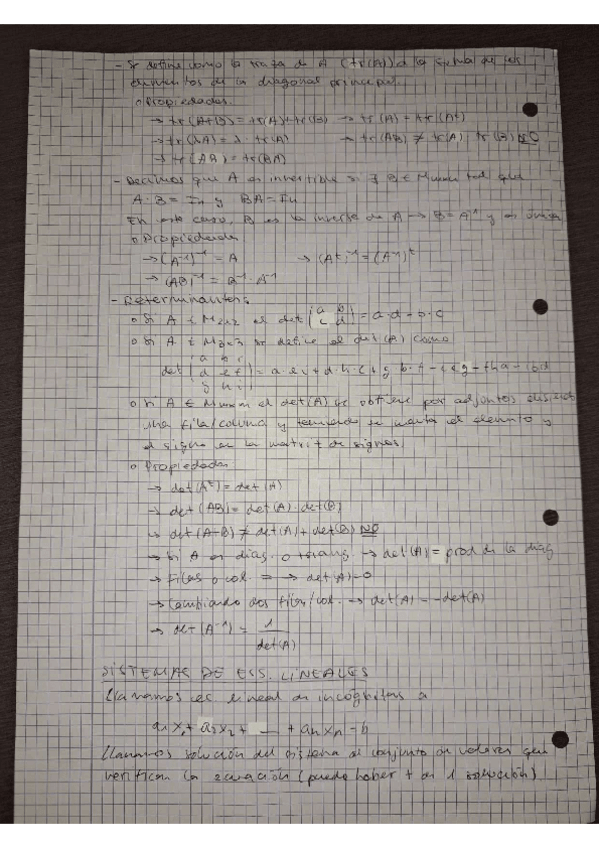 - Se define como la traza de A (tr(A)) a la suma de los
elementos de la diagonal principal.
o Propiedades.
→ tr(A+B) = tr(A)+tr(B) → tr(A) = tr(Aᵗ)
→ tr(λA) = λ · tr(A) → tr(AB) ≠ tr(A) · tr(B) NO
→ tr(AB) = tr(BA)
- Decimos que A es invertible si ∃ B ∈ Mnxn tal que
A · B = In y BA = In
En este caso, B es la inversa de A → B = A⁻¹ y es única
o Propiedades
→ (A⁻¹)⁻¹ = A → (Aᵗ)⁻¹ = (A⁻¹)ᵗ
→ (AB)⁻¹ = B⁻¹ · A⁻¹
- Determinantes:
o Si A ∈ M2x2 el det (a b
c d) = a·d - b·c
o Si A ∈ M3x3 se define el det(A) como
a b c
det (d e f) = a·e·i + d·h·c + g·b·f
g h i
o Si A ∈ Mnxn el det(A) se obtiene por adjuntos
una fila/columna y teniendo en cuenta el elemento y
el signo en la matriz de signos.
o Propiedades
→ det(Aᵗ) = det(A)
→ det(AB) = det(A) · det(B)
→ det(A+B) ≠ det(A) + det(B) NO
→ Si A es diag. o triang. → det(A) = prod de la diag
→ Filas o col. = → det(A)=0
→ Cambiando dos filas/col. → det(A) = -det(A)
→ det(A⁻¹) = 1
det(A)
SISTEMAS DE ECS. LINEALES
Llamamos ec lineal de incógnitas a
a₁x₁ + a₂x₂ + ... + anxn = b
Llamamos solución del sistema al conjunto de valores que
verifican la ecuación (puede haber + de 1 solución)